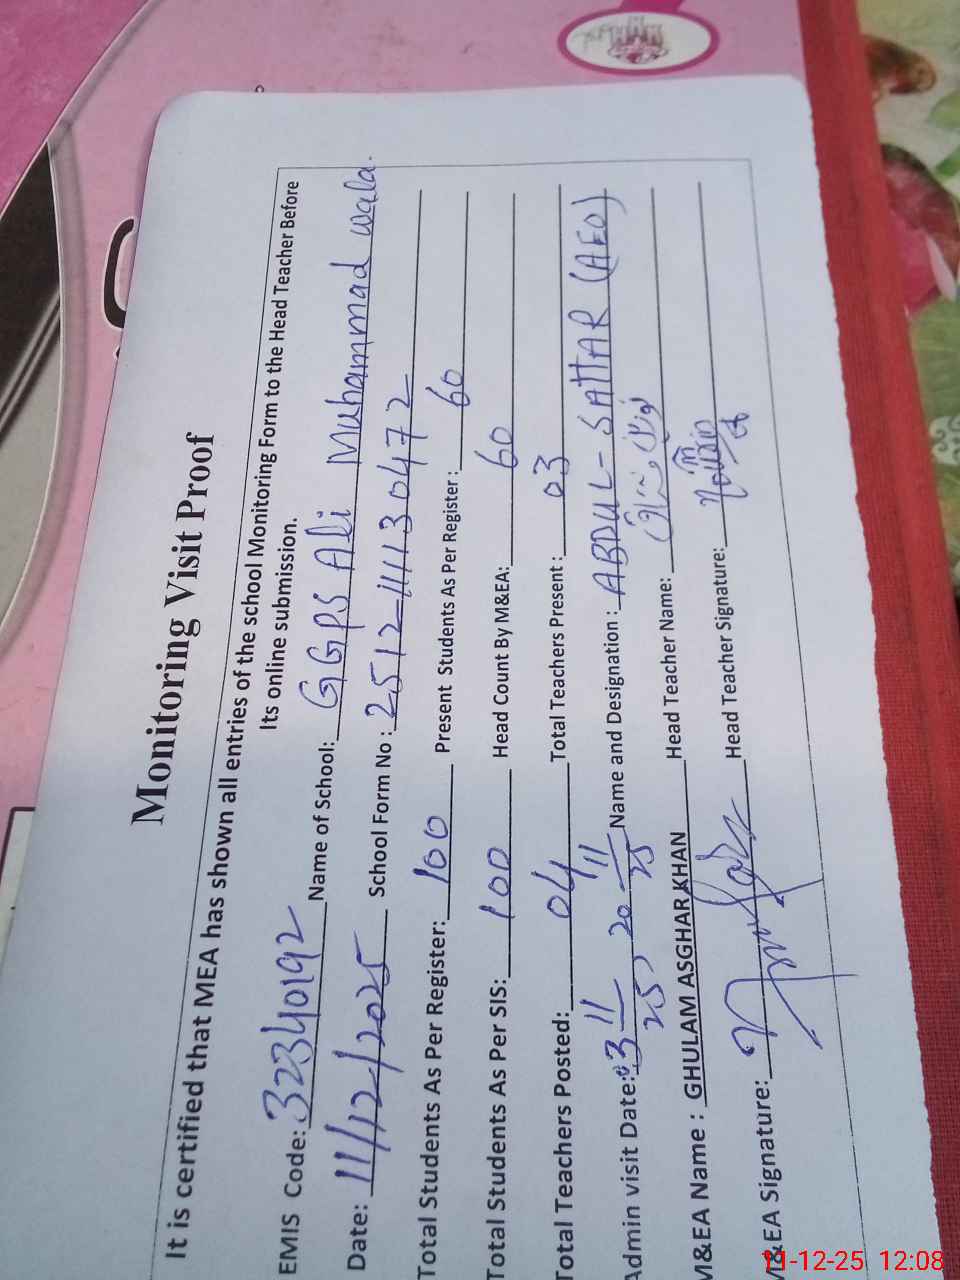 Monitoring Visit Proof
It is certified that MEA has shown all entries of the school Monitoring Form to the Head Teacher Before
Its online submission.
EMIS Code: 32340192 Name of School: GGPS Ali Muhammad wala.
Date: 11/12/2025 School Form No : 2512-11130472
Total Students As Per Register: 100 Present Students As Per Register: 60
Total Students As Per SIS: 100 Head Count By M&EA: 60
Total Teachers Posted: 04 Total Teachers Present : 03
Admin visit Date: 3 11/25, 20 11/25 Name and Designation : ABDUL-SATTAR (AEO)
M&EA Name : GHULAM ASGHAR KHAN Head Teacher Name:
M&EA Signature: Head Teacher Signature:
11-12-25 12:08